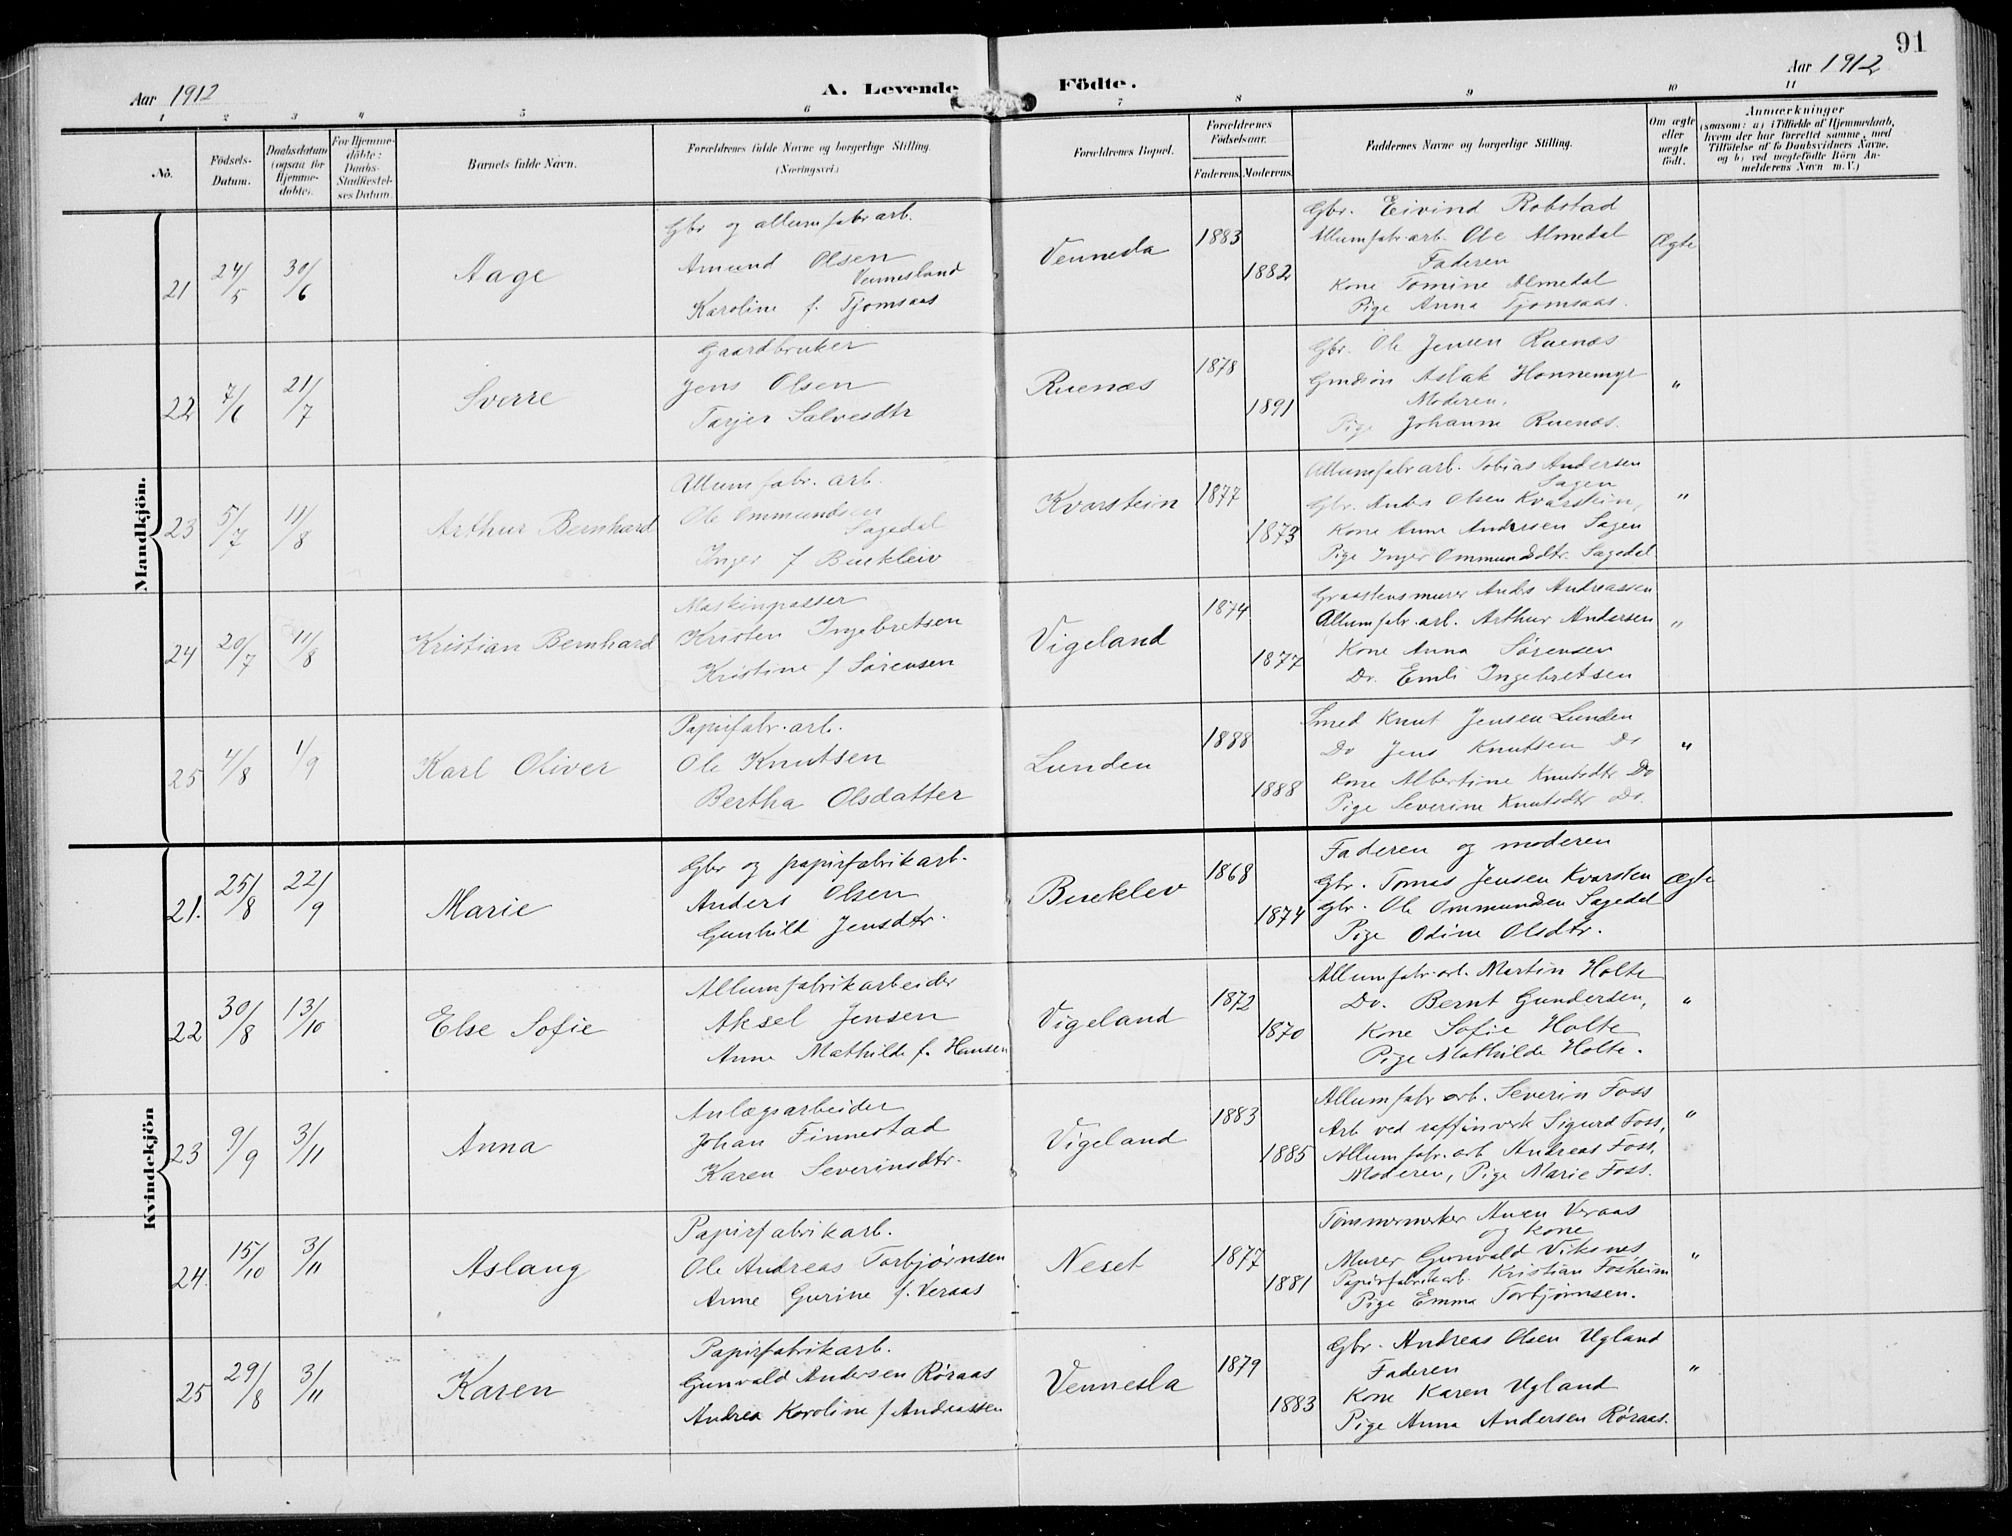 91
Aar 1912
A. Levende Födte.
Aar 1912
1 2 3 4 5 6 7 8 9 10 11
No.
Födsels-Datum.
Daabsdatum (ogsaa for Hjemme-döbte).
For Hjemme-döbte: Daabs-Stadfæstel-ses Datum.
Barnets fulde Navn.
Forældrenes fulde Navne og borgerlige Stilling.
(Næringsvei.)
Forældrenes Bopæl.
Forældrenes Födselsaar.
Faderens. Moderens.
Faddernes Navne og borgerlige Stilling.
Om ægte eller uægte födt.
Anmærkninger
(saasom: a) i Tilfælde af Hjemmedaab, hvem der har forrettet samme, med Tilföielse af to Daabsvidners Navne, og b) ved uægtefödte Börn An-melderens Navn m. V.)
Mandkjön.
21 24/5 30/6 Aage
Gbr og allumfabr arb.
Amund Olsen
Vennesland
Karoline f. Tjomsaas
Vennesla 1883 1882
Gbr. Eivind Robstad
Allumfabr. arb. Ole Almedal
Faderen
Kone Tomine Almedal
Pige Anna Tjomsaas.
Ægte
22 7/6 21/7 Sverre
Gaardbruker
Jens Olsen
Tarjer Salvesdtr
Ruenæs 1878 1891
Gbr. Ole Jensen Ruenæs
Gmdsøn Aslak Honnemyr
Moderen.
Pige Johanne Ruenæs.
"
23 5/7 11/8 Arthur Bernhard
Allumfabr. arb.
Ole Ommundsen
Sagedal
Inger f Bueklev
Kvarstein 1877 1873
Allumfabr arb. Tobias Andersen
Sagen
Gbr. Anders Olsen Kvarstein,
Kone Anne Andersen Sagen
Pige Inger Ommundsdtr. Sagedal
"
24 20/7 11/8 Kristian Bernhard
Maskinpasser
Kristen Ingebretsen
Kristine f Sørensen
Vigeland 1874 1877
Graastensmurer Anders Andreassen
Allumfabr. arb. Arthur Andersen
Kone Anna Sørensen
Do. Emli Ingebretsen
"
25 4/8 1/9 Karl Oliver
Papirfabr. arb.
Ole Knutsen
Bertha Olsdatter
Lunden 1888 1888
Smed Knut Jensen Lunden
Do Jens Knutsen Do
Kone Albertine Knutsdtr Do
Pige Severine Knutsdtr Do.
"
Kvindekjön
21. 25/8 22/9 Marie
Gbr og papirfabrikarb.
Anders Olsen
Gunhild Jensdtr.
Bueklev 1868 1874
Faderen og moderen
Gbr. Tomas Jensen Kvarsten
Gbr. Ole Ommundsen Sagedal
Pige Odine Olsdtr.
Ægte
22 30/8 13/10 Else Sofie
Allumfabrikarbeider
Aksel Jensen
Anne Mathilde f. Hansen
Vigeland 1872 1870
Allumfabr arb. Martin Holte
Do. Bernt Gundersen,
Kone Sofie Holte
Pige Mathilde Holte.
"
23 9/9 3/11 Anna
Anlægsarbeider
Johan Finnestad
Karen Severinsdtr.
Vigeland 1883 1885
Allumfabr arb. Severin Foss
Arb ved raffinverk Sigurd Foss,
Allumfabr. arb Andreas Foss,
Moderen, Pige Marie Foss.
"
24. 15/10 3/11 Aslaug
Papirfabrikarb.
Ole Andreas Torbjørnsen
Anne Gurine f. Veraas
Neset 1877 1881
Tømmermerker Auen Veraas
og kone
Murer Gunvald Viksnes
Papirfabrikarb. Kristian Fosheim
Pige Emma Torbjørnsen.
"
25 29/8 3/11 Karen
Papirfabrikarb.
Gunvald Andersen Røraas
Andrea Karoline f Andreassen
Vennesla 1879 1883
Gbr. Andreas Olsen Ugland
Faderen
Kone Karen Ugland
Pige Anna Andersen Røraas.
"